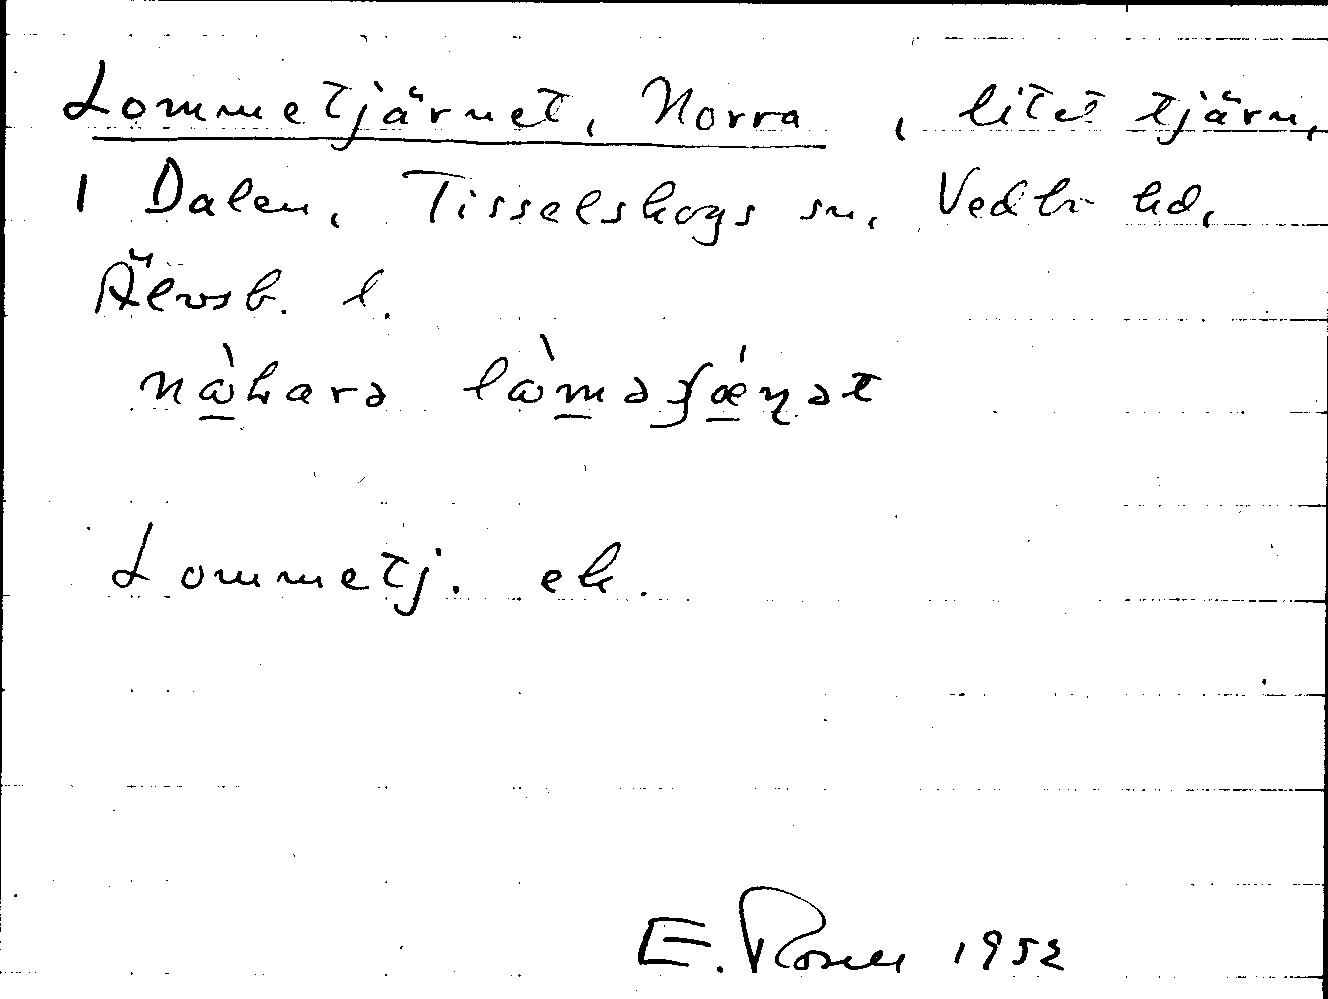 Lommetjärnet, Norra, litet tjärn,
1 Dalen, Tisselskogs sn, Vedbo hd,
Älvsb. l.
nàhara
Lommetj. ek.
E. Rosell 1952